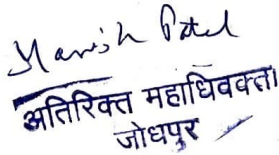 Manish Patel
अतिरिक्त महाधिवक्ता
जोधपुर